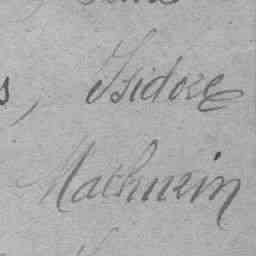 s, Isidore
Mathurin